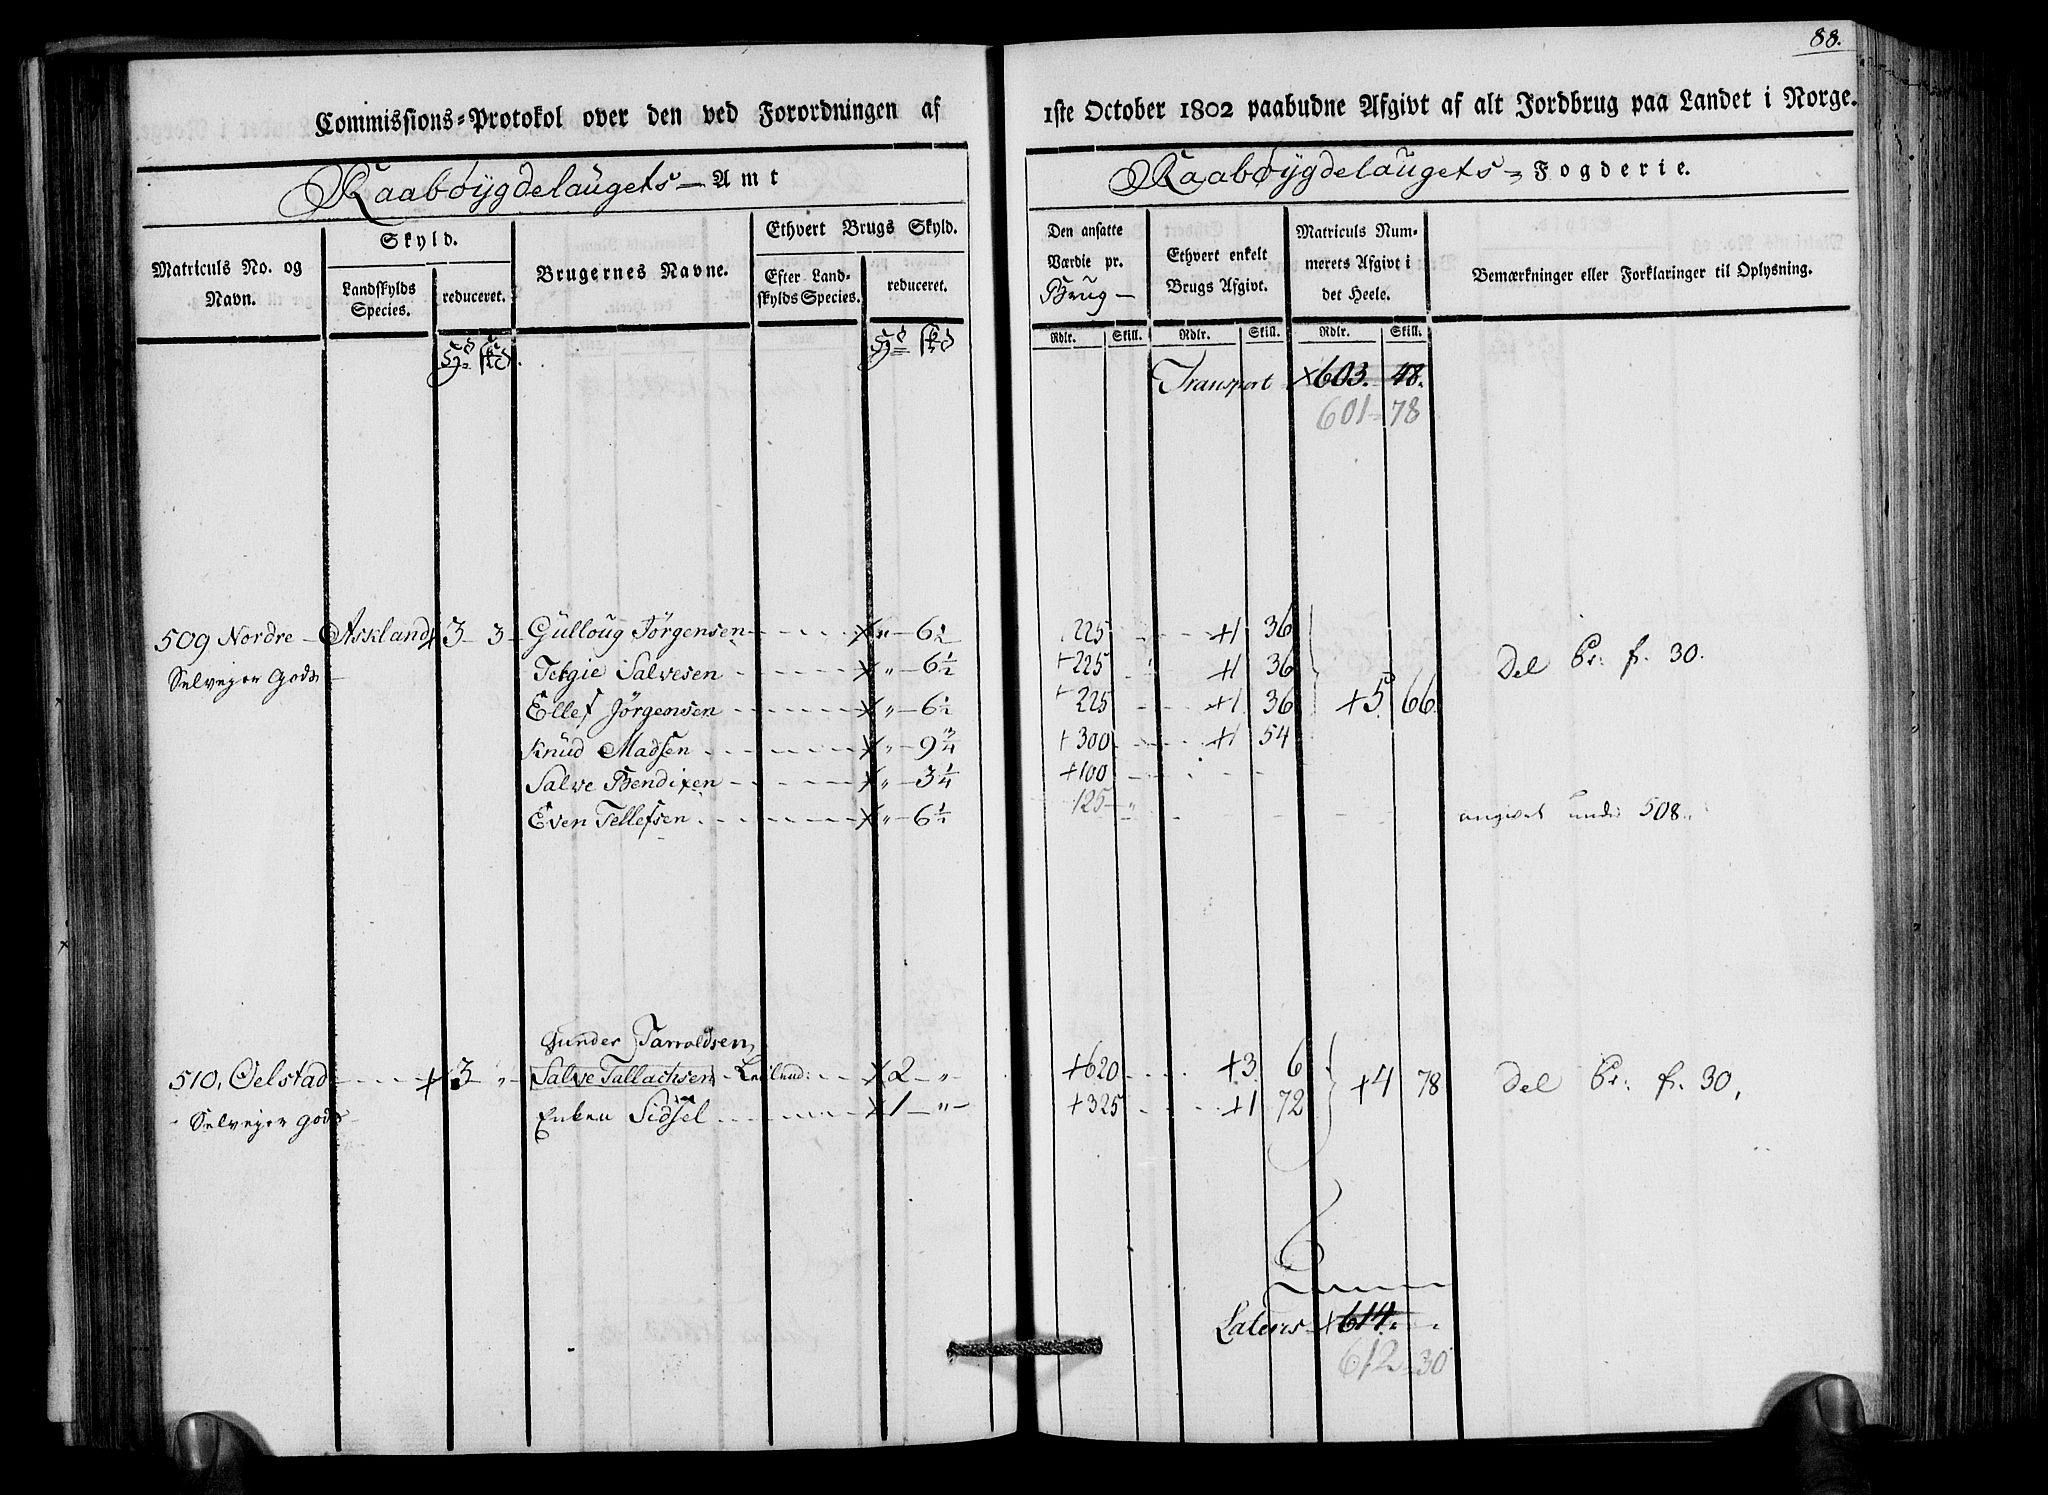 88.
Commissions-Protokol over den ved Forordningen af 1ste October 1802 paabudne Afgivt af alt Jordbrug paa Landet i Norge.
Raabøygdelaugets Amt
Raabøygdelaugets Fogderie.
Matriculs No. og Navn.
Skyld.
Landskylds Species.
reduceret.
Brugernes Navne.
Ethvert Brugs Skyld.
Efter Landskylds Species.
reduceret.
Den ansatte Værdie pr. Brug
Ethvert enkelt Brugs Afgivt.
Matriculs Nummerets Afgivt i det Heele.
Bemærkninger eller Forklaringer til Oplysning.
Rdlr. Skill. Rdlr. Skill. Rdlr. Skill.
Transport 603. 48.
601-78
509 Nordre Askland 3 3 Gulloug Jørgensen „ 6½ 225 1 36
Selveier Gods Tergie Salvesen „ 6½ 225 1 36 Del Pr: f. 30.
Ellef Jørgensen „ 6½ 225 1 36 5. 66.
Knud Madsen „ 9¾ 300 1 54
Salve Bendixen „ 3¼ 100
Even Tellefsen „ 6½ 125 angivet under 508.
Gunder Tarraldsen
510, Oelstad 3 „ Salve Tallachsen Leilend: 2 „ 620 3 6 4 78 Del Pr: f. 30,
Selveier Gods Enken Sidsel 1 „ 325 1 72
Lateris 614.
612-30